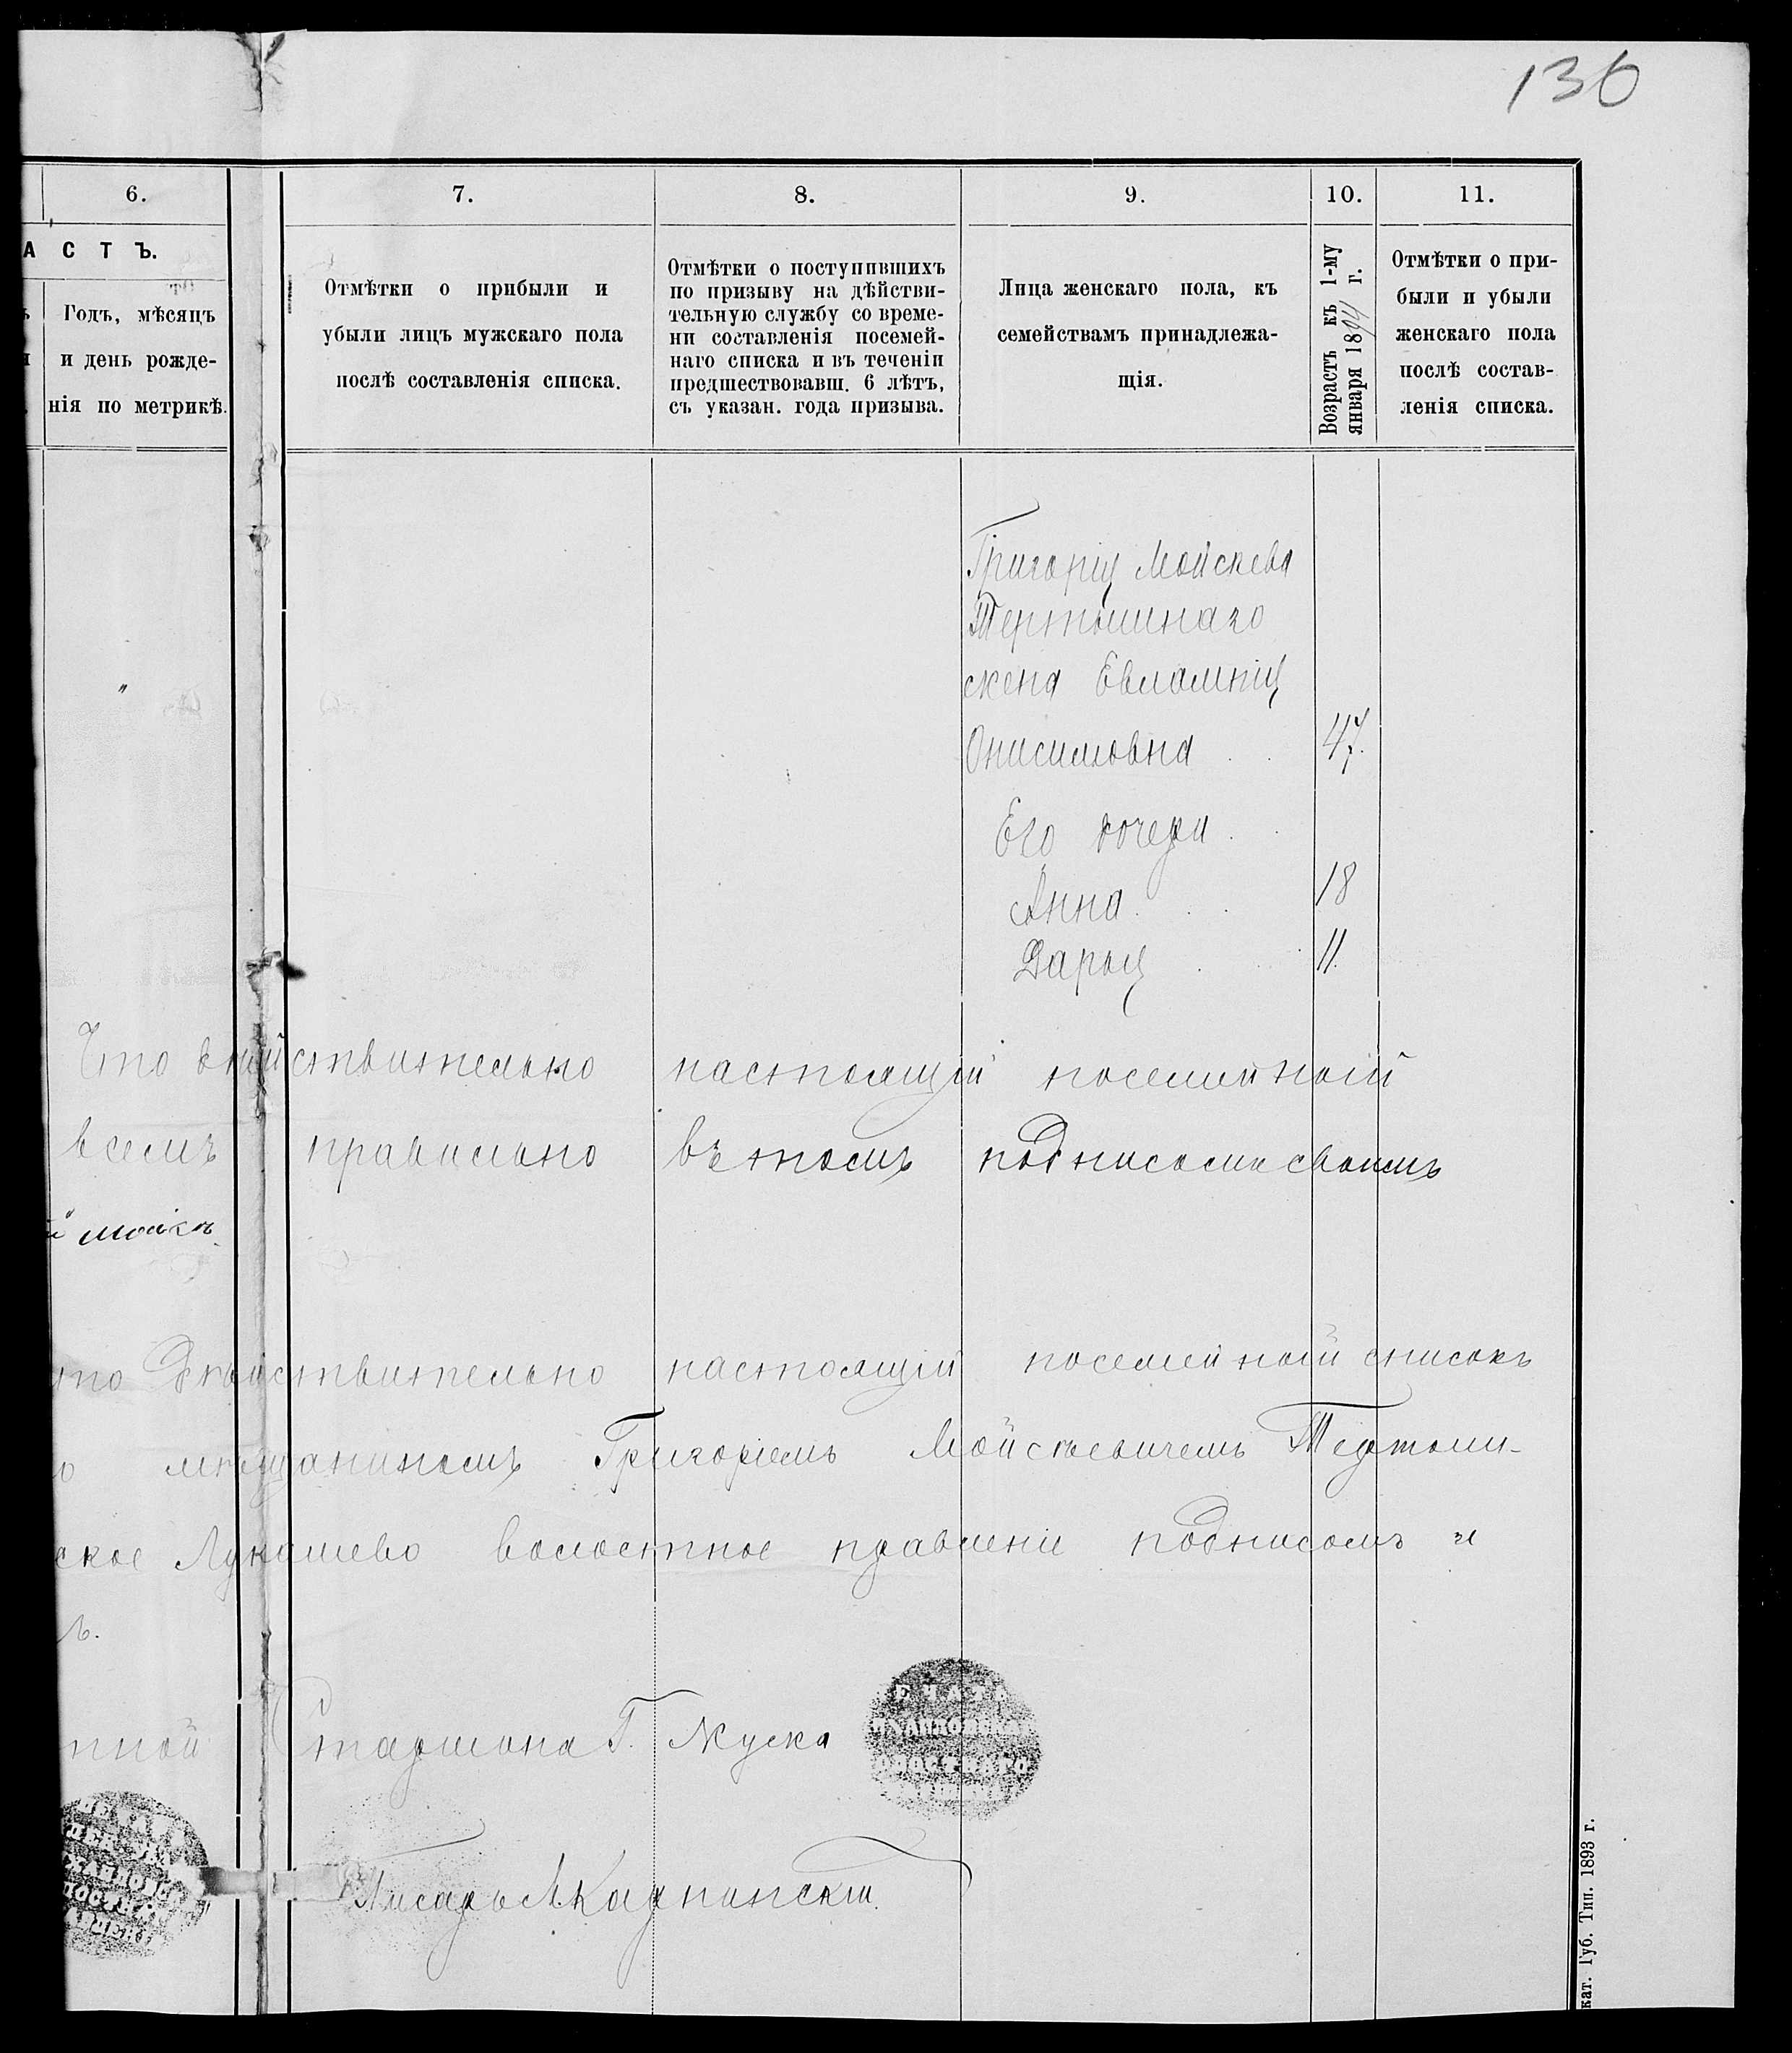 136
6.
7.
8.
9.
10.
11.
А С Т Ъ.
Годъ, мѣсяцъ
и день рожде-
нія по метрикѣ.
Отмѣтки о прибыли и
убыли лицъ мужскаго пола
послѣ составленія списка.
Отмѣтки о поступившихъ
по призыву на дѣйстви-
тельную службу со време-
ни составленія посемей-
наго списка и въ теченіи
предшествовавш. 6 лѣтъ,
съ указан. года призыва.
Лица женскаго пола, къ
семействамъ принадлежа-
щія.
Возрастъ къ 1-му
января 1894 г.
Отмѣтки о при-
были и убыли
женскаго пола
послѣ состав-
ленія списка.
Григорія Мойсеева
Тертышнаго
жена Евлампія
Онисимовна 47.
Его дочери
Анна 18
Дарья 11.
Что дѣйствительно настоящій посемейной
всемъ правильно въ томъ подписомъ своимъ
то Дѣйствительно настоящій посемейной списокъ
о мѣщаниномъ Григоріемъ Мойсѣевичемъ Тертыш-
ское Лукашево волостное правленіе подписомъ и
ъ.
тной Старшина Г. Жуска
Писарь Карпинскій.
кат. Губ. Тип. 1893 г.